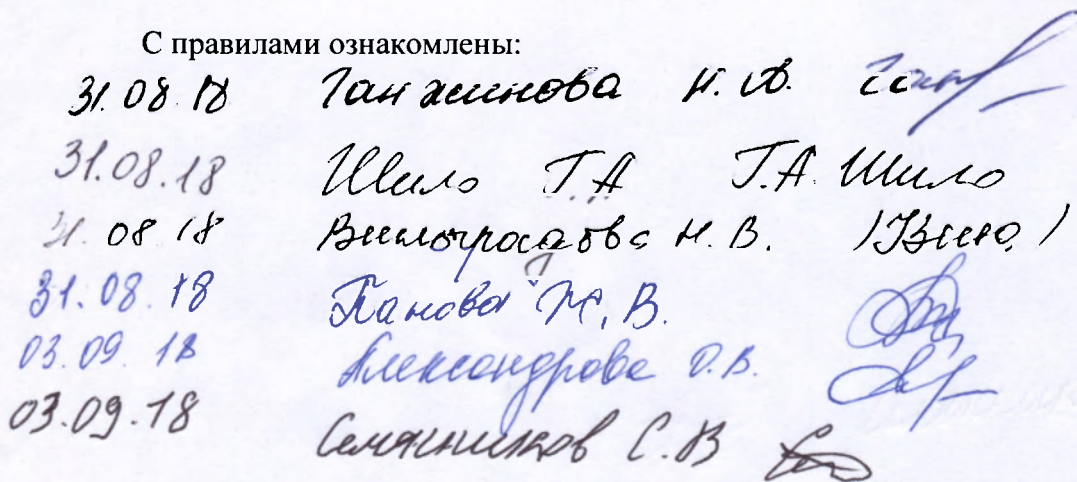 С правилами ознакомлены:
31.08.18 Ганжинова Н. В.
31.08.18 Шило Г.А Г.А. Шило
31. 08 18 Виноградова Н. В. (Вино)
31.08.18 Панова Ж. В.
03.09.18 Александрова О.В.
03.09.18 Семянников С.В